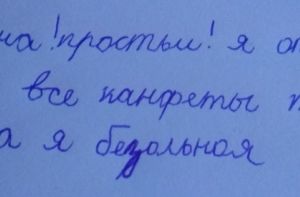 на! простыи! я от
все канфеты
а я безольная